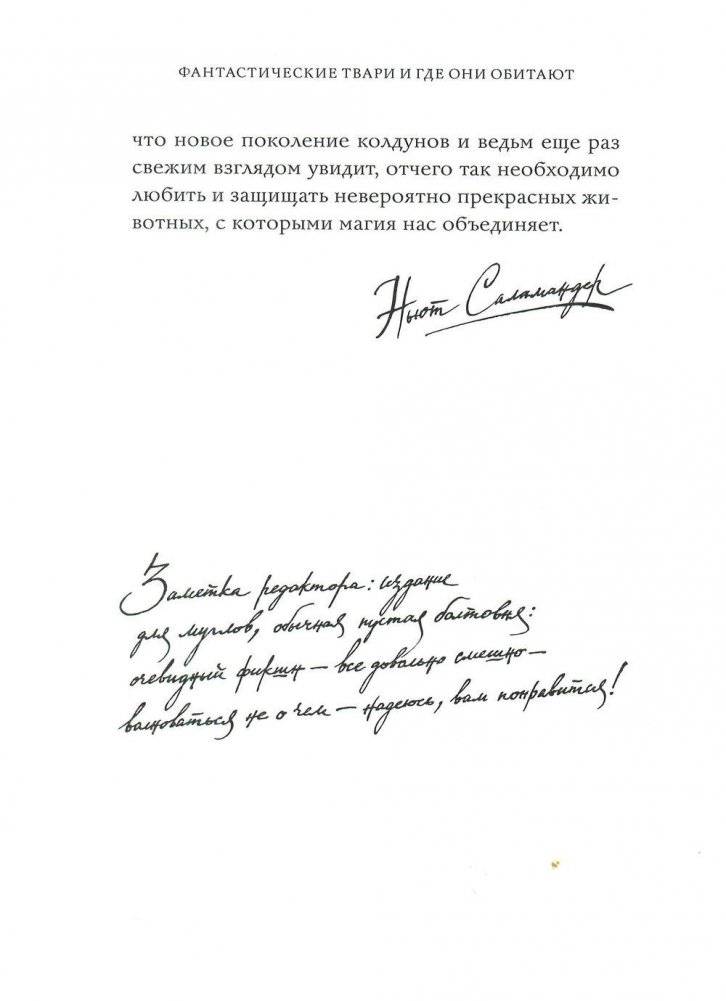 ФАНТАСТИЧЕСКИЕ ТВАРИ И ГДЕ ОНИ ОБИТАЮТ
что новое поколение колдунов и ведьм еще раз
свежим взглядом увидит, отчего так необходимо
любить и защищать невероятно прекрасных жи-
вотных, с которыми магия нас объединяет.
Ньют Саламандер
Заметка редактора: издание
для муглов, обычная пустая болтовня:
очевидный фикшн — все довольно смешно —
валноваться не о чем — надеюсь, вам понравится!